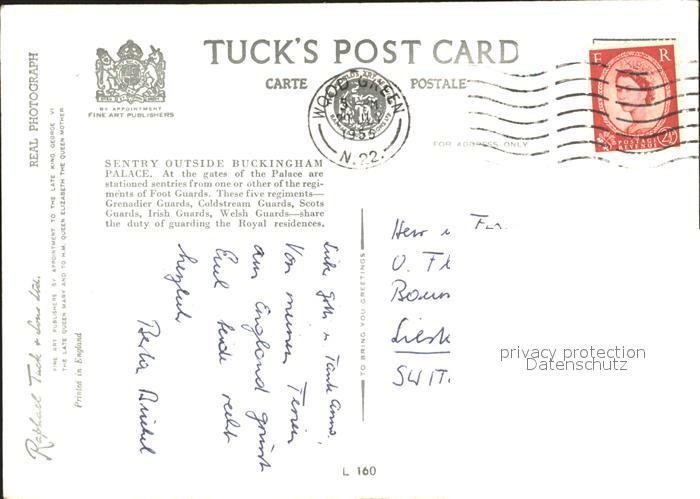 TUCK'S POST CARD
CARTE POSTALE
BY APPOINTMENT
FINE ART PUBLISHERS
WOOD GREEN
1955
N. 22.
E R
POSTAGE
REVENUE
2½
FOR ADDRESS ONLY
SENTRY OUTSIDE BUCKINGHAM
PALACE. At the gates of the Palace are
stationed sentries from one or other of the regi-
ments of Foot Guards. These five regiments—
Grenadier Guards, Coldstream Guards, Scots
Guards, Irish Guards, Welsh Guards—share
the duty of guarding the Royal residences.
REAL PHOTOGRAPH
Raphael Tuck & Sons Ltd.
FINE ART PUBLISHERS BY APPOINTMENT TO THE LATE KING GEORGE VI
THE LATE QUEEN MARY AND TO H.M. QUEEN ELIZABETH THE QUEEN MOTHER
Printed in England
Tante Anna,
Von meinen Ferien
aus England grüsst
Euch beide recht
herzlich
TO BRING YOU GREETINGS
Herr u
SWIT
privacy protection
Datenschutz
L 160